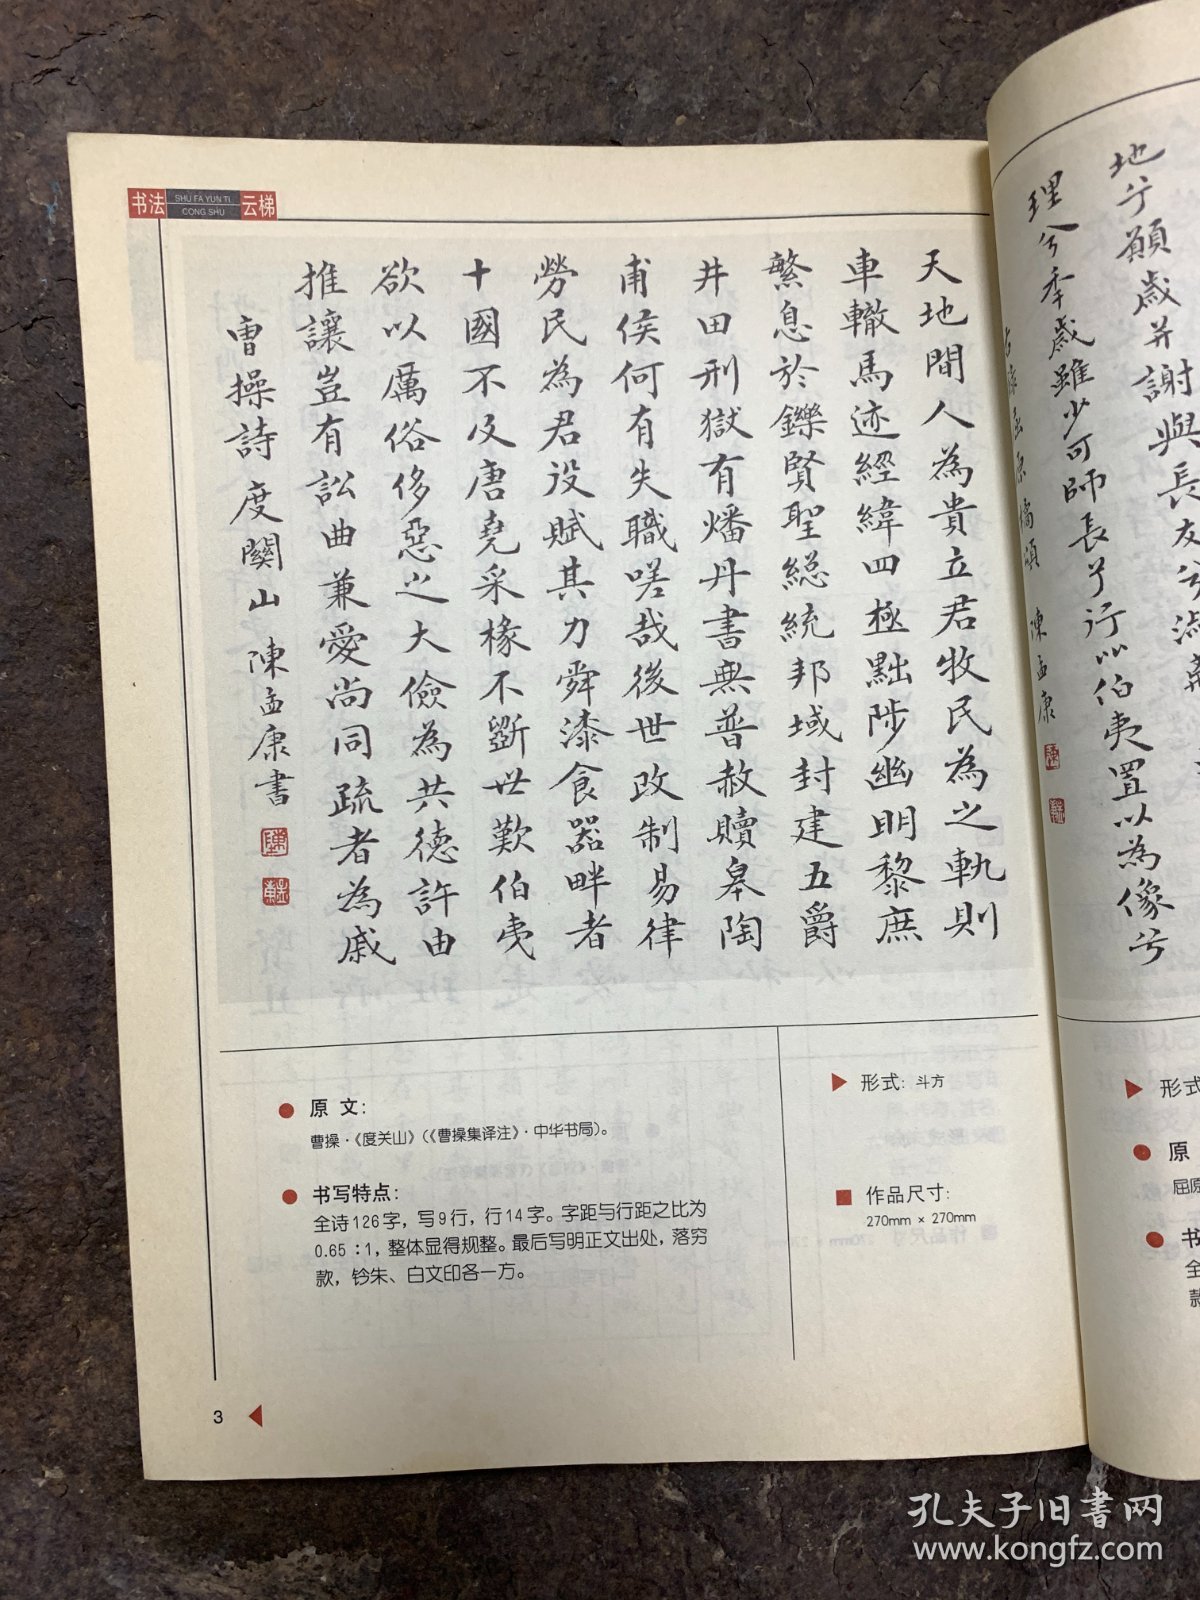 书法 SHU FA YUN TI CONG SHU 云梯
天地間人為貴立君牧民為之軌則
車轍馬迹經緯四極黜陟幽明黎庶
繁息於鑠賢聖総統邦域封建五爵
井田刑獄有燔丹書無普赦贖皋陶
甫侯何有失職嗟哉後世改制易律
勞民為君役賦其力舜漆食器畔者
十國不及唐堯采椽不斲世歎伯夷
欲以厲俗侈惡之大儉為共德許由
推讓豈有訟曲兼愛尚同疏者為戚
曹操詩度關山 陳孟康書
原 文：
曹操·《度关山》（《曹操集译注》·中华书局）。
书写特点：
全诗126字，写9行，行14字。字距与行距之比为
0.65：1，整体显得规整。最后写明正文出处，落穷
款，钤朱、白文印各一方。
形式：斗方
作品尺寸：
270mm × 270mm
3
地兮願歲并謝與長友兮淑
理兮年歲雖少可師長兮行以伯夷置以為像兮
陳孟康
形式
原
屈原
书
全
款
孔夫子旧书网
www.kongfz.com